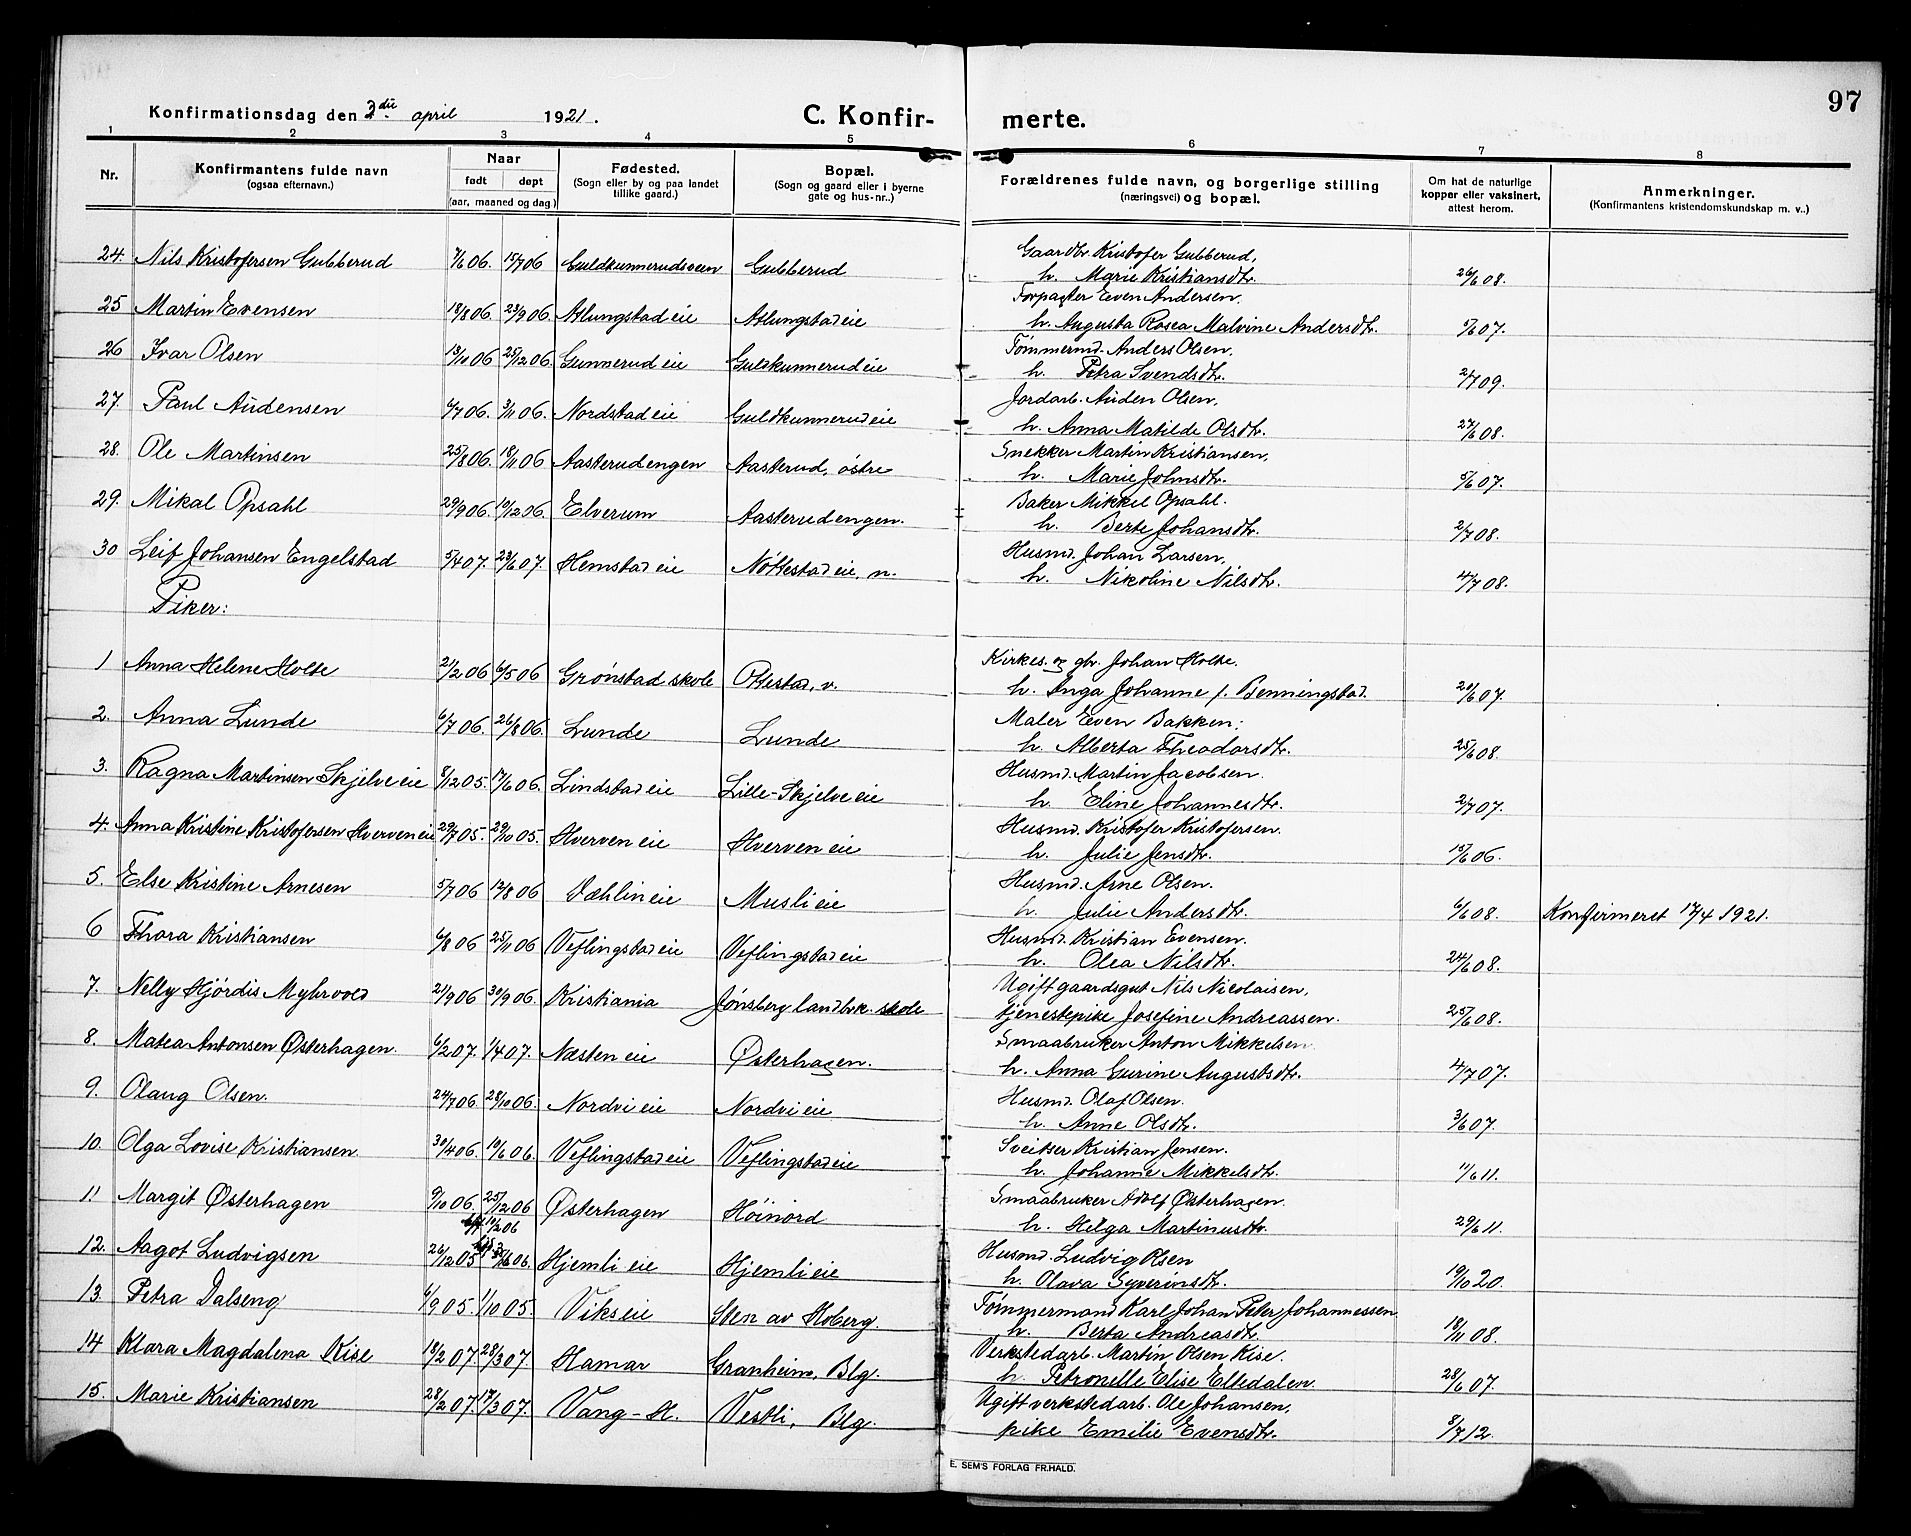 97
Konfirmationsdag den 3die april 1921. C. Konfir- merte.
1 2 3 4 5 6 7 8
Nr. Konfirmantens fulde navn (ogsaa efternavn.) Naar født døpt (aar, maaned og dag) Fødested. (Sogn eller by og paa landet tillike gaard.) Bopæl. (Sogn og gaard eller i byerne gate og hus-nr..) Forældrenes fulde navn, og borgerlige stilling (næringsvei) og bopæl. Om hat de naturlige kopper eller vaksinert, attest herom. Anmerkninger. (Konfirmantens kristendomskundskap m. v..)
24. Nils Kristofersen Gubberud 7/6 06. 15/7 06 Guldkunnerudsveen Gubberud Gaardbr. Kristofer Gubberud,
h. Marie Kristiansdtr. 26/6 08.
25 Martin Evensen 18/8 06. 23/9 06. Atlungstad eie Atlungstad eie Forpagter Even Andersen.
h. Augusta Rosea Malvine Andersdtr. 5/6 07.
26 Ivar Olsen 13/10 06 25/12 06. Gunnerud eie Guldkunnerud eie Tømmermd. Anders Olsen.
h. Petra Svendsdtr. 2/7 09.
27. Paul Audensen 6/7 06. 3/11 06. Nordstad eie Guldkunnerud eie Jordarb. Auden Olsen.
h. Anna Matilde Olsdtr. 27/6 08.
28. Ole Martinsen 25/8 06. 18/11 06 Aasterudengen Aasterud, østre Snekker Martin Kristiansen,
h. Marie Johnsdtr. 5/6 07.
29. Mikal Opsahl 29/9 06. 19/12 06. Elverum Aasterudengen. Baker Mikkel Opsahl.
h. Berte Johansdtr. 2/7 08.
30 Leif Johansen Engelstad 5/4 07. 23/6 07. Hemstad eie Nøttestad eie, n. Husmd. Johan Larsen,
h. Nikoline Nilsdtr. 4/7 08.
Piker:
1 Anna Helene Holte 21/2 06 6/5 06 Grønstad skole Ottestad, v. Kirkes. og gbr. Johan Holte.
h. Inga Johanne f. Benningstad. 20/6 07.
2. Anna Lunde 6/7 06. 26/8 06. Lunde Lunde Maler Even Bakken:
h. Alberta Theodorsdtr. 25/6 08.
3. Ragna Martinsen Skjelve eie 8/12 05. 17/6 06. Lindstad eie Lille-Skjelve eie Husmd. Martin Jacobsen.
h. Eline Johannesdtr. 2/7 07.
4. Anna Kristine Kristofersen Hverven eie 29/7 05. 29/10 05. Hverven eie Hverven eie Husmd. Kristofer Kristofersen.
h. Julie Jensdtr. 15/6 06.
5. Else Kristine Arnesen 5/7 06 12/8 06 Dæhlin eie Musli eie Husmd. Arne Olsen.
h. Julie Andersdtr. 6/6 08. Konfirmeret 17/4 1921.
6 Thora Kristiansen 6/8 06 25/11 06 Veflingstad eie Veflingstad eie Husmd. Kristian Evensen.
h. Olea Nilsdtr. 24/6 08.
7. Nelly Hjördis Myhrvold 21/9 06 30/9 06. Kristiania Jønsberg landbrk. skole Ugift gaardsgut Nils Nicolaisen,
tjenestepike Josefine Andreassen. 25/6 08.
8. Matea Antonsen Østerhagen. 6/2 07. 1/4 07. Næsten eie Østerhagen. Smaabruker Anton Mikkelsen
h. Anna Gurine Augustsdtr. 4/7 07.
9. Olaug Olsen. 24/7 06. 28/10 06. Nordvi eie Nordvi eie Husmd. Olaf Olsen.
h. Anne Olsdtr. 3/6 07.
10. Olga Lovise Kristiansen 30/4 06. 10/6 06. Veflingstad eie Veflingstad eie Sveitser Kristian Jensen.
h. Johanne Mikkelsdtr. 11/6 11.
11 Margit Østerhagen 9/10 06. 25/12 06 Østerhagen Høinord Smaabruker Adolf Østerhagen.
h. Helga Martinusdtr. 29/6 11.
12. Aagot Ludvigsen 26/12 05 Hjemli eie Hjemli eie Husmd. Ludvig Olsen
h. Olava Syverinsdtr. 19/10 20.
13. Petra Dalseng 6/9 05. 1/10 05. Viks eie Sten av Hoberg. Tømmermand Karl Johan Peter Johannessen
h. Berta Andreasdtr. 18/11 08.
14 Klara Magdalena Kise 18/2 07. 28/3 07. Hamar Granheim, Blg. Verkstedarb. Martin Olsen Kise.
h. Petronelle Elise Eltedalen. 28/6 07.
15. Marie Kristiansen 28/2 07. 17/3 07. Vang-H. Vestli, Blg. Ugift verkstedarb. Ole Johansen,
pike Emilie Evensdtr. 8/7 12.
E. SEM'S FORLAG FR.HALD.